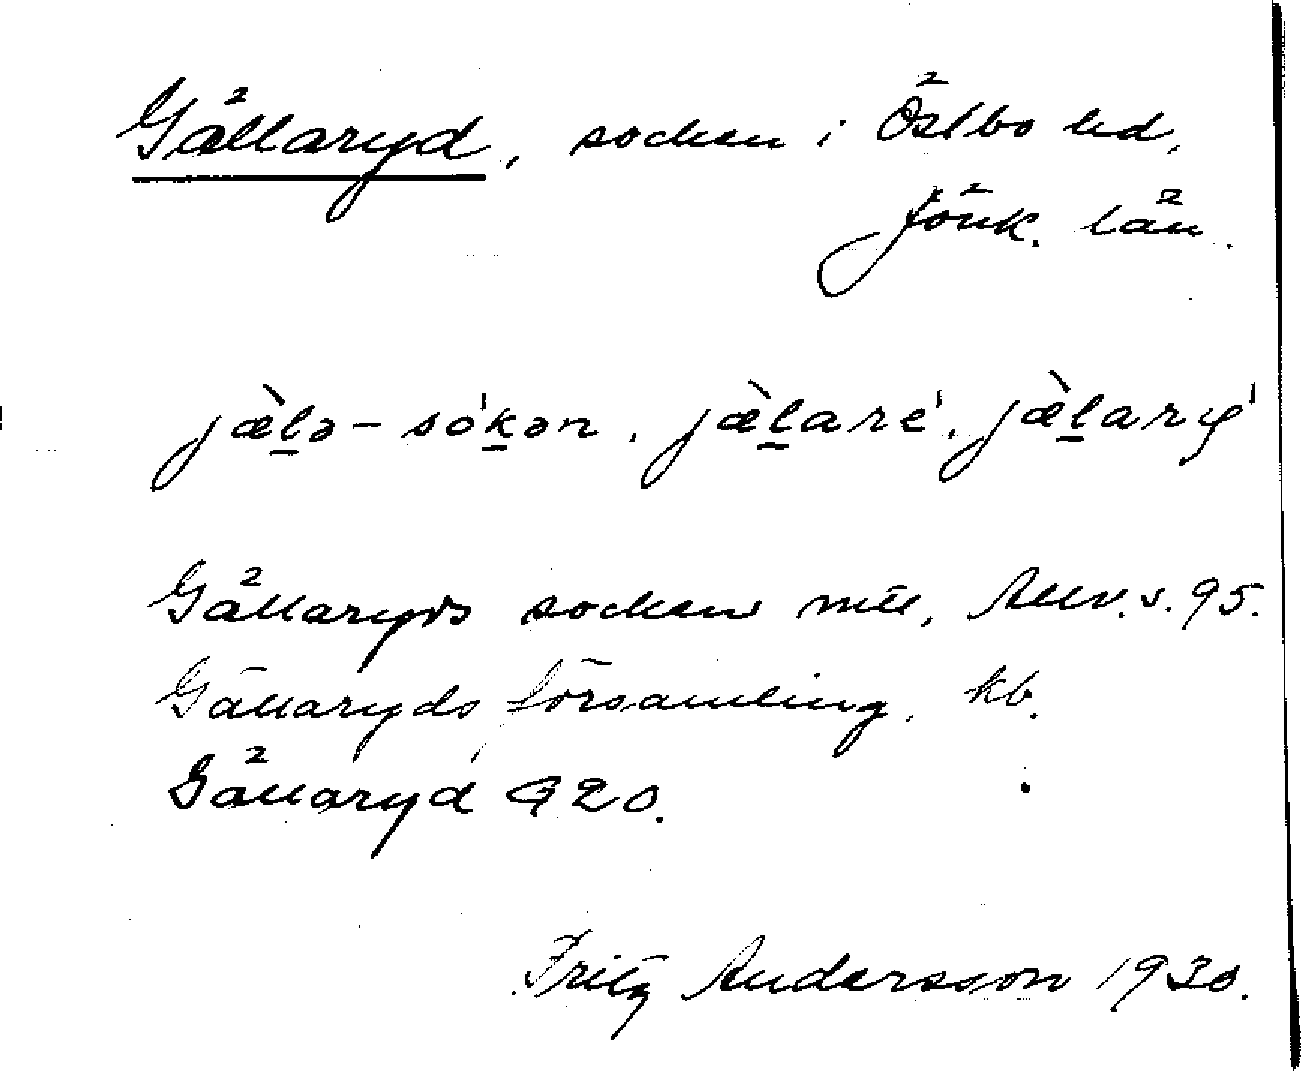 Gällaryd, socken i Östbo hd,
Jönk. län.
jæ̀lə-sókən. jælaré. jælarý
Gällaryds socken 95.
Gällaryds församling, kb.
Gällaryd G 20.
Fritz Andersson 1930.